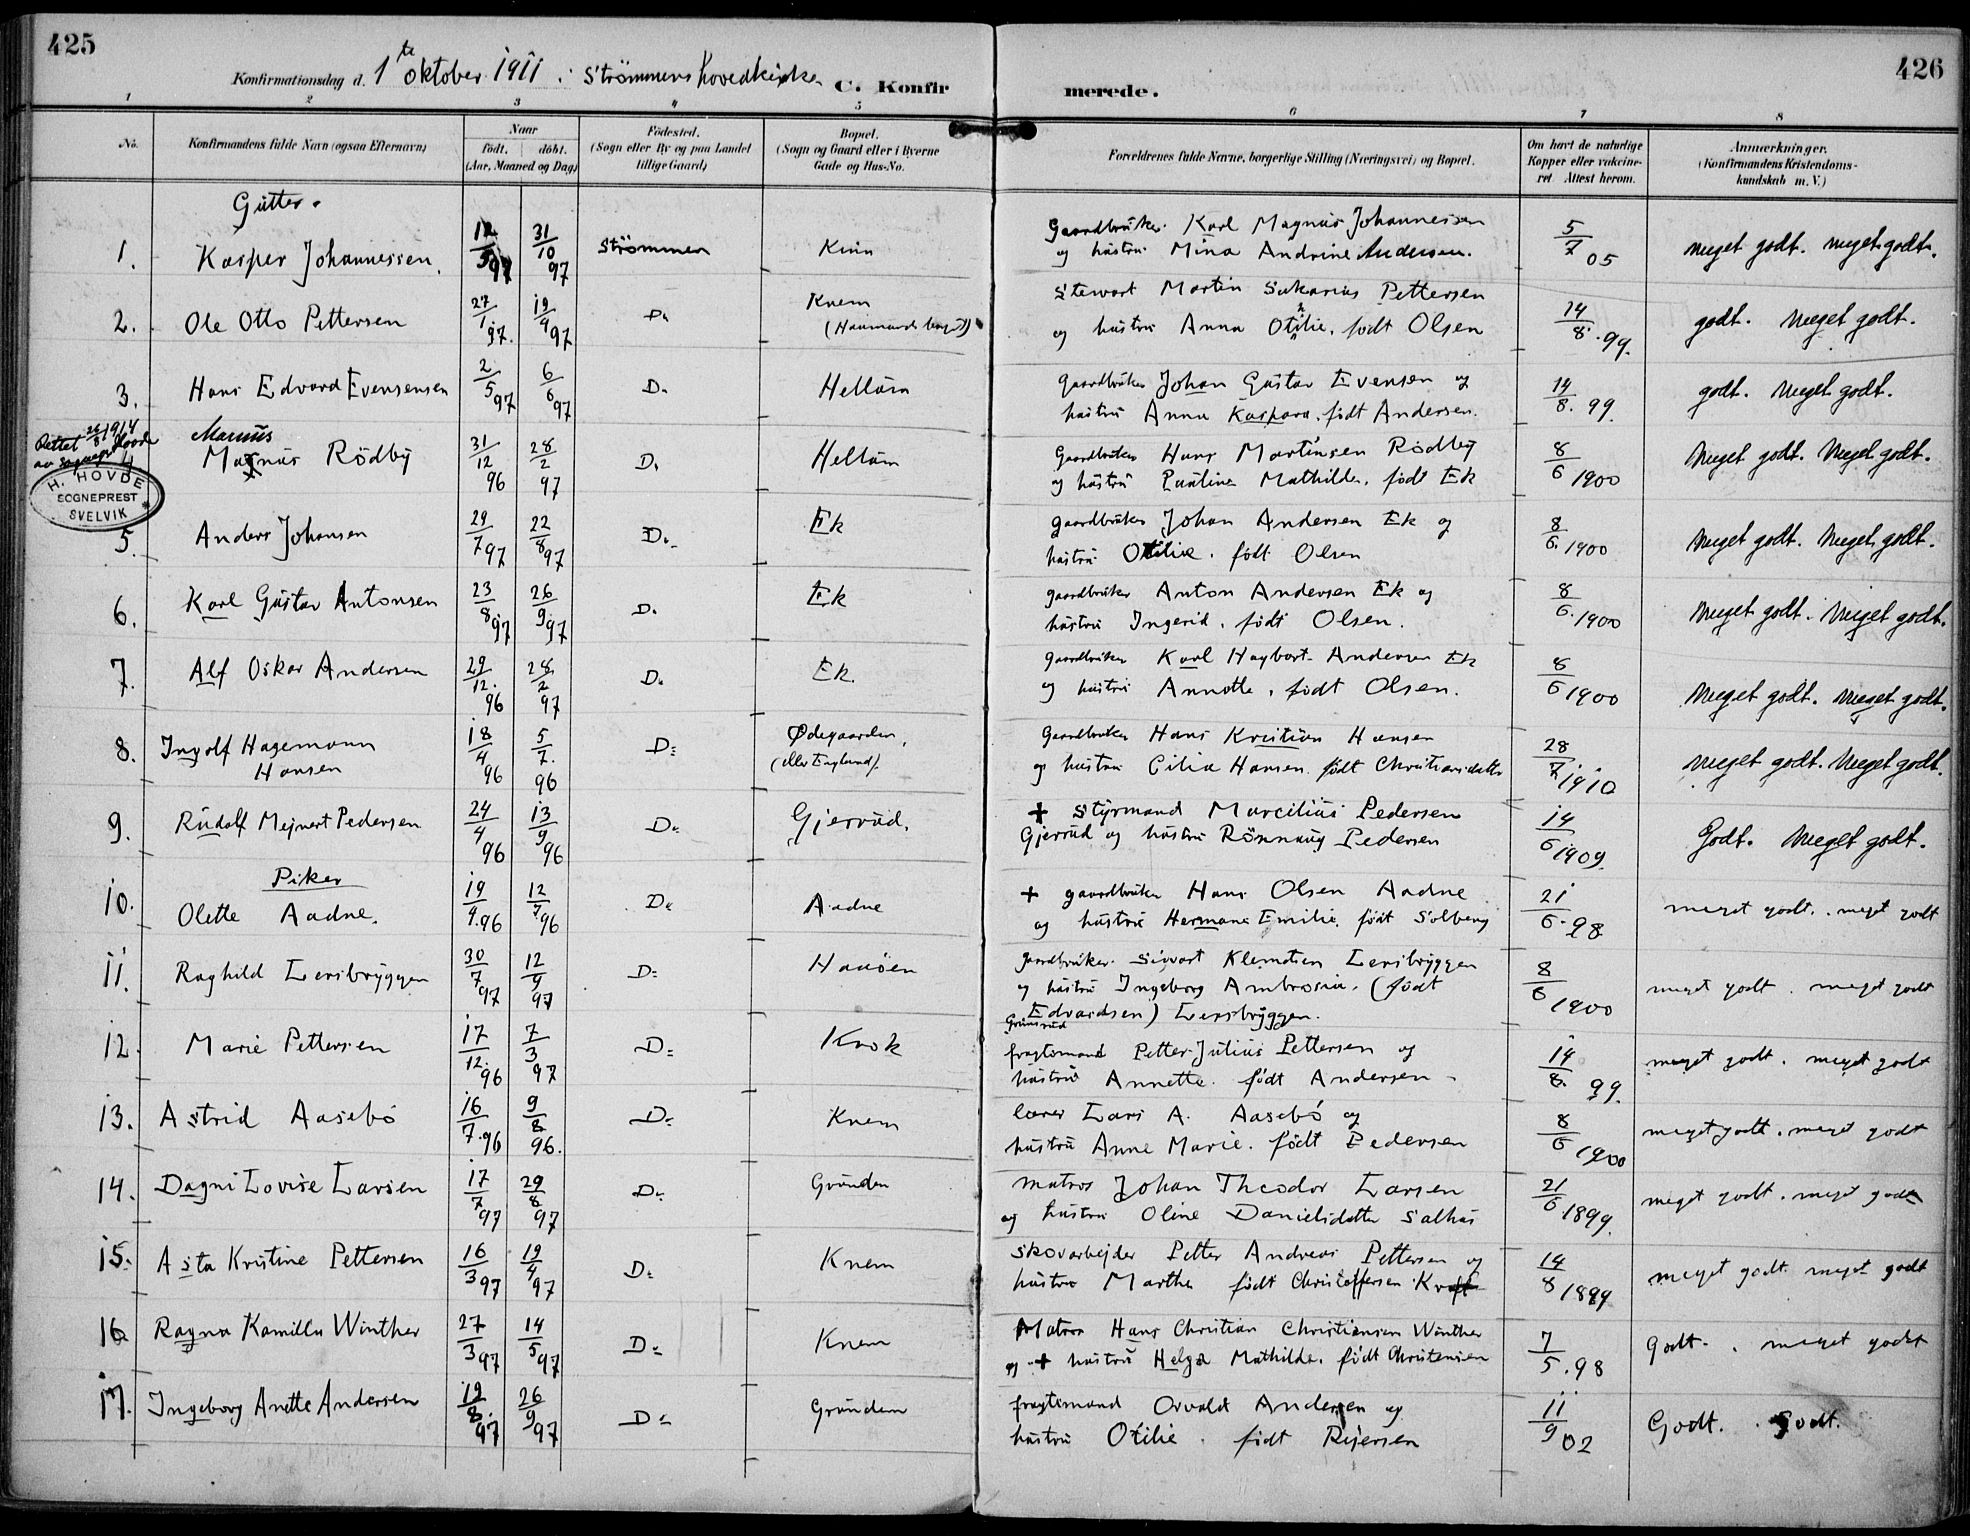 425
426
Konfirmationsdag d. 1te oktober 1911 i Strömmens hovedkirke
C. Konfirmerede.
1 2 3 4 5 6 7 8
No.
Konfirmandens fulde Navn (ogsaa Efternavn)
Naar
födt. döbt.
(Aar, Maaned og Dag)
Födested.
(Sogn eller By og paa Landet
tillige Gaard)
Bopæl.
(Sogn og Gaard eller i Byerne
Gade og Hus-No.
Forældrenes fulde Navne, borgerlige Stilling (Næringsvei) og Bopæl.
Om havt de naturlige
Kopper eller vakcine-
ret Attest herom.
Anmærkninger.
(Konfirmandens Kristendoms-
kundskab m. V.)
Gutter.
1. Kasper Johannessen. 31/10 97 Strömmen Knin
Gaardbruker Karl Magnus Johannessen
og hustru Mina Andrine Andersen.
5/7 05 meget godt. meget godt.
2. Ole Otto Pettersen 27/1 97. 19/4 97 Do Knem
Stewart Martin Sakarias Pettersen
og hustru Anna Otilie, født Olsen
14/8 99. godt. Meget godt.
3. Hans Edvard Evensensen 2/5 97 6/6 97 Do Hellum
gaardbruker Johan Gustav Evensen og
hustru Anna Kaspara, født Andersen.
14/8. 99. godt. Meget godt.
Rettet 26/8 1914 Hovde
H. HOVDE
SOGNEPREST
SVELVIK
Marius
4 Magnus Rödby 31/12 96 28/2 97 Do Hellum
Gaardbruker Hans Martinsen Rødby
og hustru Pauline Mathilde, født Ek
8/6 1900 Meget godt. Meget godt.
5. Anders Johansen 29/7 97 22/8 97 Do Ek
gaardbruker Johan Andersen Ek og
hustru Otilie, født Olsen
8/6. 1900 Meget godt. Meget godt.
6. Karl Gustav Antonsen 23/8 97 26/9 97 Do Ek
gaardbruker Anton Andersen Ek og
hustru Ingerid, født Olsen.
8/6. 1900 Meget godt. Meget godt.
7. Alf Oskar Andersen 29/12. 96 28/2 97 Do Ek.
gaardbruker Karl Hagbart Andersen Ek
og hustru Annette, født Olsen.
8/6 1900 Meget godt. Meget godt.
8. Ingolf Hagemann
Hansen 18/4 96 5/7. 96 Do Ødegaarden,
(eller Englund).
Gaardbruker Hans Kristian Hansen
og hustru Cilia Hansen født Christiansdatter
28/7 1910 meget godt. Meget godt.
9. Rudolf Mejnert Pedersen 24/4 96 13/9 96 Do Gjerrud.
+ Styrmand Marcilius Pedersen
Gjerrud og hustru Rönnaug Pedersen
14/6 1909. Godt. Meget godt.
Piker
10. Olette Aadne. 19/9. 96 12/7 96 Do Aadne
+ gaardbruker Hans Olsen Aadne
og hustru Hermane Emilie, født Solberg
21/6. 98 meget godt. meget godt
11. Raghild Lersbryggen 30/7 97 12/9 97 Do Haaöen
gaardbruker Sigvart Klemetsen Lersbryggen
og hustru Ingeborg Ambrosia. (født
Edvardsen) Lersbryggen.
8/6 1900 meget godt. meget godt
12. Marie Pettersen 17/12. 96 7/3 97 Do Krok
Grimsrud
fragtemand Petter Julius Pettersen og
hustru Annette født Andersen
14/8. 99. meget godt. meget godt
13. Astrid Aasebö 16/7. 96 9/8 96. Do Knem
lærer Lars A. Aasebö og
hustru Anne Marie. født Pedersen
8/6 1900 meget godt. meget godt
14. Dagni Lovise Larsen 17/7 97 29/8 97 Do Grunden
matros Johan Theodor Larsen
og hustru Oline Danielsdatter Salhus
21/6 1899. meget godt. meget godt
15. Asta Kristine Pettersen 16/3 97 19/4 97 Do Knem
skovarbejder Petter Andreas Pettersen og
hustru Marthe født Christoffersen
14/8 1899 meget godt. meget godt
16 Ragna Kamilla Winther 27/3 97 14/5 97 Do Knem
Matros Hans Christian Christiansen Winther
og + hustru Helga Mathilde. født Christensen
7/5. 98 Godt. meget godt
17. Ingeborg Anette Andersen 19/8. 97 26/9 97 Do Grunden
fragtemand Osvald Andersen og
hustru Otilie. født Reiersen
11/9 02 Godt. Godt.